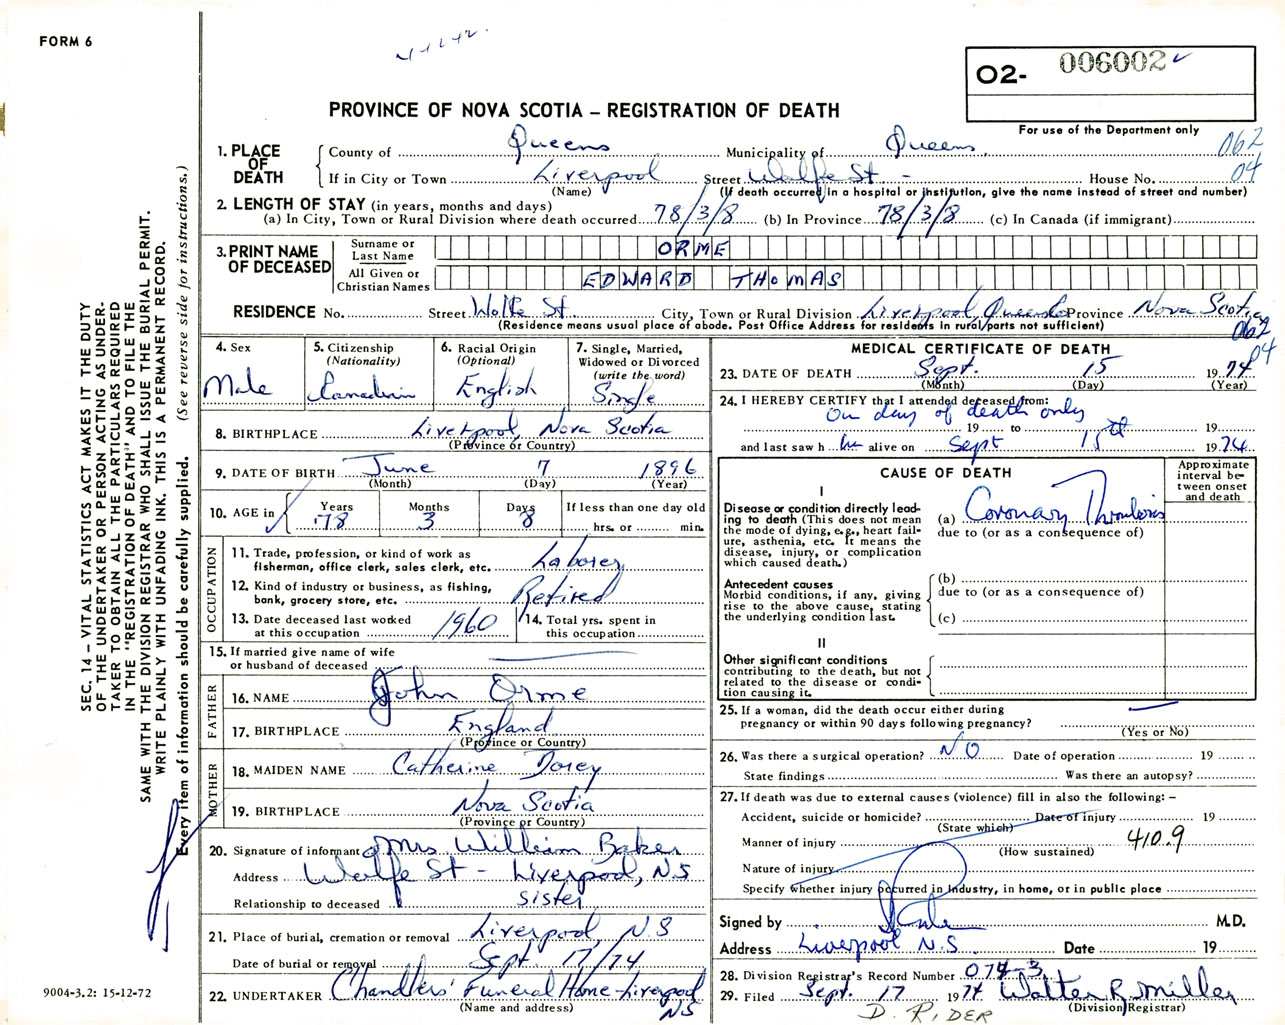 FORM 6
O2- 006002
PROVINCE OF NOVA SCOTIA – REGISTRATION OF DEATH
For use of the Department only
062
04
1. PLACE OF DEATH
County of Queens Municipality of Queens
If in City or Town Liverpool Street Wolfe St - House No.
(Name) (If death occurred in a hospital or institution, give the name instead of street and number)
2. LENGTH OF STAY (in years, months and days)
(a) In City, Town or Rural Division where death occurred 78/3/8 (b) In Province 78/3/8 (c) In Canada (if immigrant)
3. PRINT NAME OF DECEASED
Surname or Last Name ORME
All Given or Christian Names EDWARD THOMAS
RESIDENCE No. Street Wolfe St. City, Town or Rural Division Liverpool, Queens Co Province Nova Scotia
(Residence means usual place of abode. Post Office Address for residents in rural parts not sufficient)
062
04
4. Sex Male
5. Citizenship (Nationality) Canadian
6. Racial Origin (Optional) English
7. Single, Married, Widowed or Divorced (write the word) Single
8. BIRTHPLACE Liverpool, Nova Scotia
(Province or Country)
9. DATE OF BIRTH June 7 1896
(Month) (Day) (Year)
10. AGE in Years 78 Months 3 Days 8 If less than one day old hrs. or min.
OCCUPATION
11. Trade, profession, or kind of work as fisherman, office clerk, sales clerk, etc. Laborer
12. Kind of industry or business, as fishing, bank, grocery store, etc. Retired
13. Date deceased last worked at this occupation 1960
14. Total yrs. spent in this occupation
15. If married give name of wife or husband of deceased
FATHER
16. NAME John Orme
17. BIRTHPLACE England
(Province or Country)
MOTHER
18. MAIDEN NAME Catherine Dorey
19. BIRTHPLACE Nova Scotia
(Province or Country)
20. Signature of informant Mrs William Baker
Address Wolfe St - Liverpool, N.S
Relationship to deceased sister
21. Place of burial, cremation or removal Liverpool, N.S
Date of burial or removal Sept. 17/74
22. UNDERTAKER Chandlers' Funeral Home-Liverpool NS
(Name and address)
MEDICAL CERTIFICATE OF DEATH
23. DATE OF DEATH Sept. 15 1974
(Month) (Day) (Year)
24. I HEREBY CERTIFY that I attended deceased from:
On day of death only
19 to 19
and last saw him alive on Sept 15th 1974
CAUSE OF DEATH
Approximate interval between onset and death
I
Disease or condition directly leading to death (This does not mean the mode of dying, e.g., heart failure, asthenia, etc. It means the disease, injury, or complication which caused death.)
(a) Coronary Thrombosis
due to (or as a consequence of)
Antecedent causes
Morbid conditions, if any, giving rise to the above cause, stating the underlying condition last.
(b)
due to (or as a consequence of)
(c)
II
Other significant conditions contributing to the death, but not related to the disease or condition causing it.
25. If a woman, did the death occur either during pregnancy or within 90 days following pregnancy?
(Yes or No)
26. Was there a surgical operation? NO Date of operation 19
State findings Was there an autopsy?
27. If death was due to external causes (violence) fill in also the following: –
Accident, suicide or homicide? Date of injury 19
(State which)
Manner of injury 410.9
(How sustained)
Nature of injury
Specify whether injury occurred in industry, in home, or in public place
Signed by M.D.
Address Liverpool N.S. Date 19
28. Division Registrar's Record Number 074-3
29. Filed Sept. 17 1974 Walter R. Miller
(Division Registrar)
D. RIDER
SEC. 14 – VITAL STATISTICS ACT MAKES IT THE DUTY
OF THE UNDERTAKER OR PERSON ACTING AS UNDER-
TAKER TO OBTAIN ALL THE PARTICULARS REQUIRED
IN THE "REGISTRATION OF DEATH" AND TO FILE THE
SAME WITH THE DIVISION REGISTRAR WHO SHALL ISSUE THE BURIAL PERMIT.
WRITE PLAINLY WITH UNFADING INK. THIS IS A PERMANENT RECORD.
Every item of information should be carefully supplied. (See reverse side for instructions.)
9004-3.2: 15-12-72